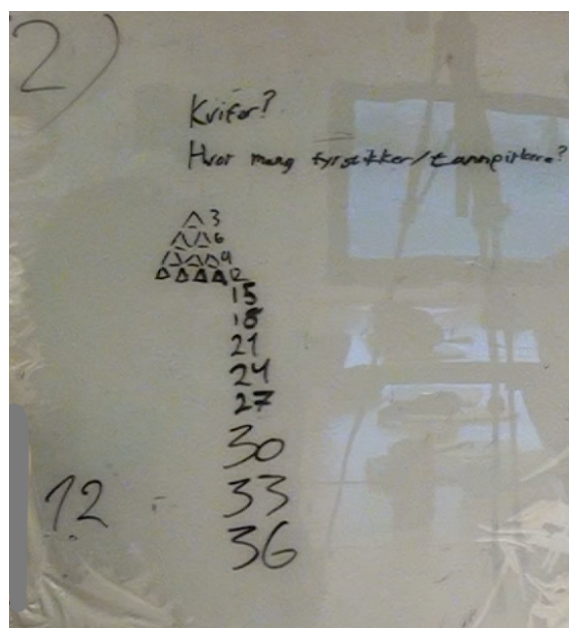 2)
Kvifor?
Hvor mang fyrstikker/tannpirkere?
3
6
9
12
15
18
21
24
27
30
12 - 33
36